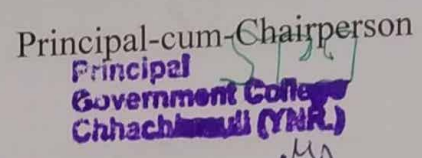 Principal-cum-Chairperson
Principal
Government College
Chhachhrauli (YNR.)